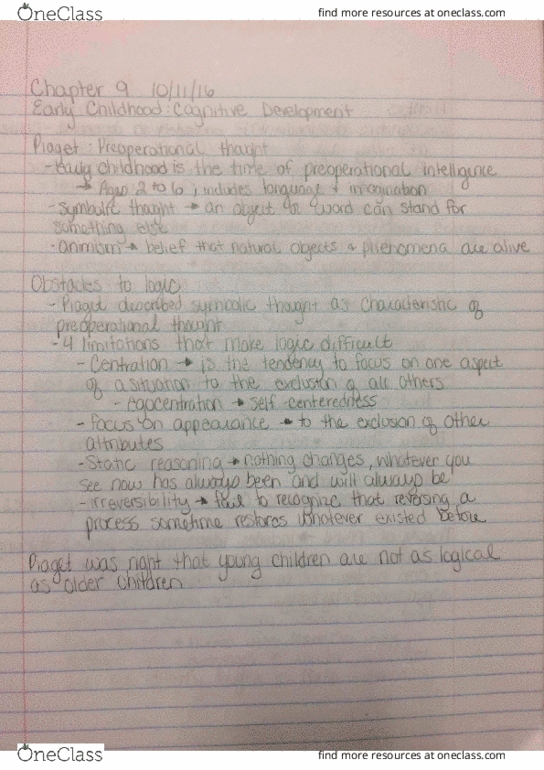 OneClass
find more resources at oneclass.com
Chapter 9 10/11/16
Early Childhood: Cognitive Development
Piaget: Preoperational thought
- Early childhood is the time of preoperational intelligence
→ Ages 2 to 6; includes language & imagination
- Symbolic thought → an object or word can stand for
something else
- animism → belief that natural objects & phenomena are alive
Obstacles to logic
- Piaget described symbolic thought as characteristic of
preoperational thought
- 4 limitations that make logic difficult
- Centration → is the tendency to focus on one aspect
of a situation to the exclusion of all others
- egocentration → self centeredness
- Focus on appearance → to the exclusion of other
attributes
- Static reasoning → nothing changes, whatever you
see now has always been and will always be
- irreversibility → fail to recognize that reversing a
process sometime restores whatever existed before
Piaget was right that young children are not as logical
as older children
OneClass
find more resources at oneclass.com